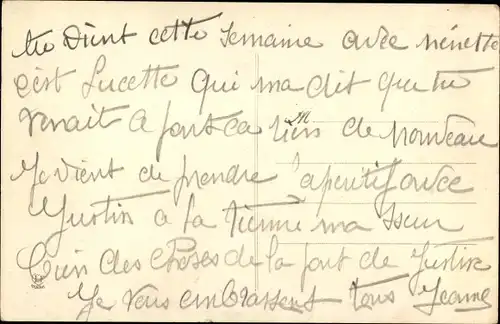 tu vient cette semaine avec nénette
cest Lucette qui ma dit que tu
venait a part ca rien de nouveau
M
Je vient de prendre l'aperitif avec
Justin a la tienne ma sœur
bien des choses de la part de Justin
Je vous embrassent tous Jeanne